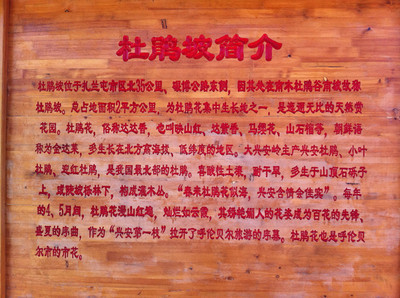 杜鹃坡简介
杜鹃坡位于扎兰屯市区北35公里、碾博公路东侧,因其处在南木杜鹃谷南坡故称
杜鹃坡。总占地面积2平方公里,为杜鹃花集中生长地之一,是遮遮天比的天然赏
花园。杜鹃花,俗称达达香,也叫映山红、达紫香、马缨花、山石榴等,朝鲜语
称为金达莱,多生长在北方高海拔、低纬度的地区。大兴安岭主产兴安杜鹃、小叶
杜鹃、迎红杜鹃,是我国最北部的杜鹃。喜酸性土壤,耐干旱,多生于山顶石砾子
上,或陡坡杨林下,构成灌木丛。“春来杜鹃花似海,兴安含情会佳宾”。每年
的4、5月间,杜鹃花漫山红遍,灿烂如云霞,其娇艳媚人的花姿成为百花的先锋、
盛夏的序曲,作为“兴安第一枝”拉开了呼伦贝尔旅游的序幕。杜鹃花也是呼伦贝
尔市的市花。